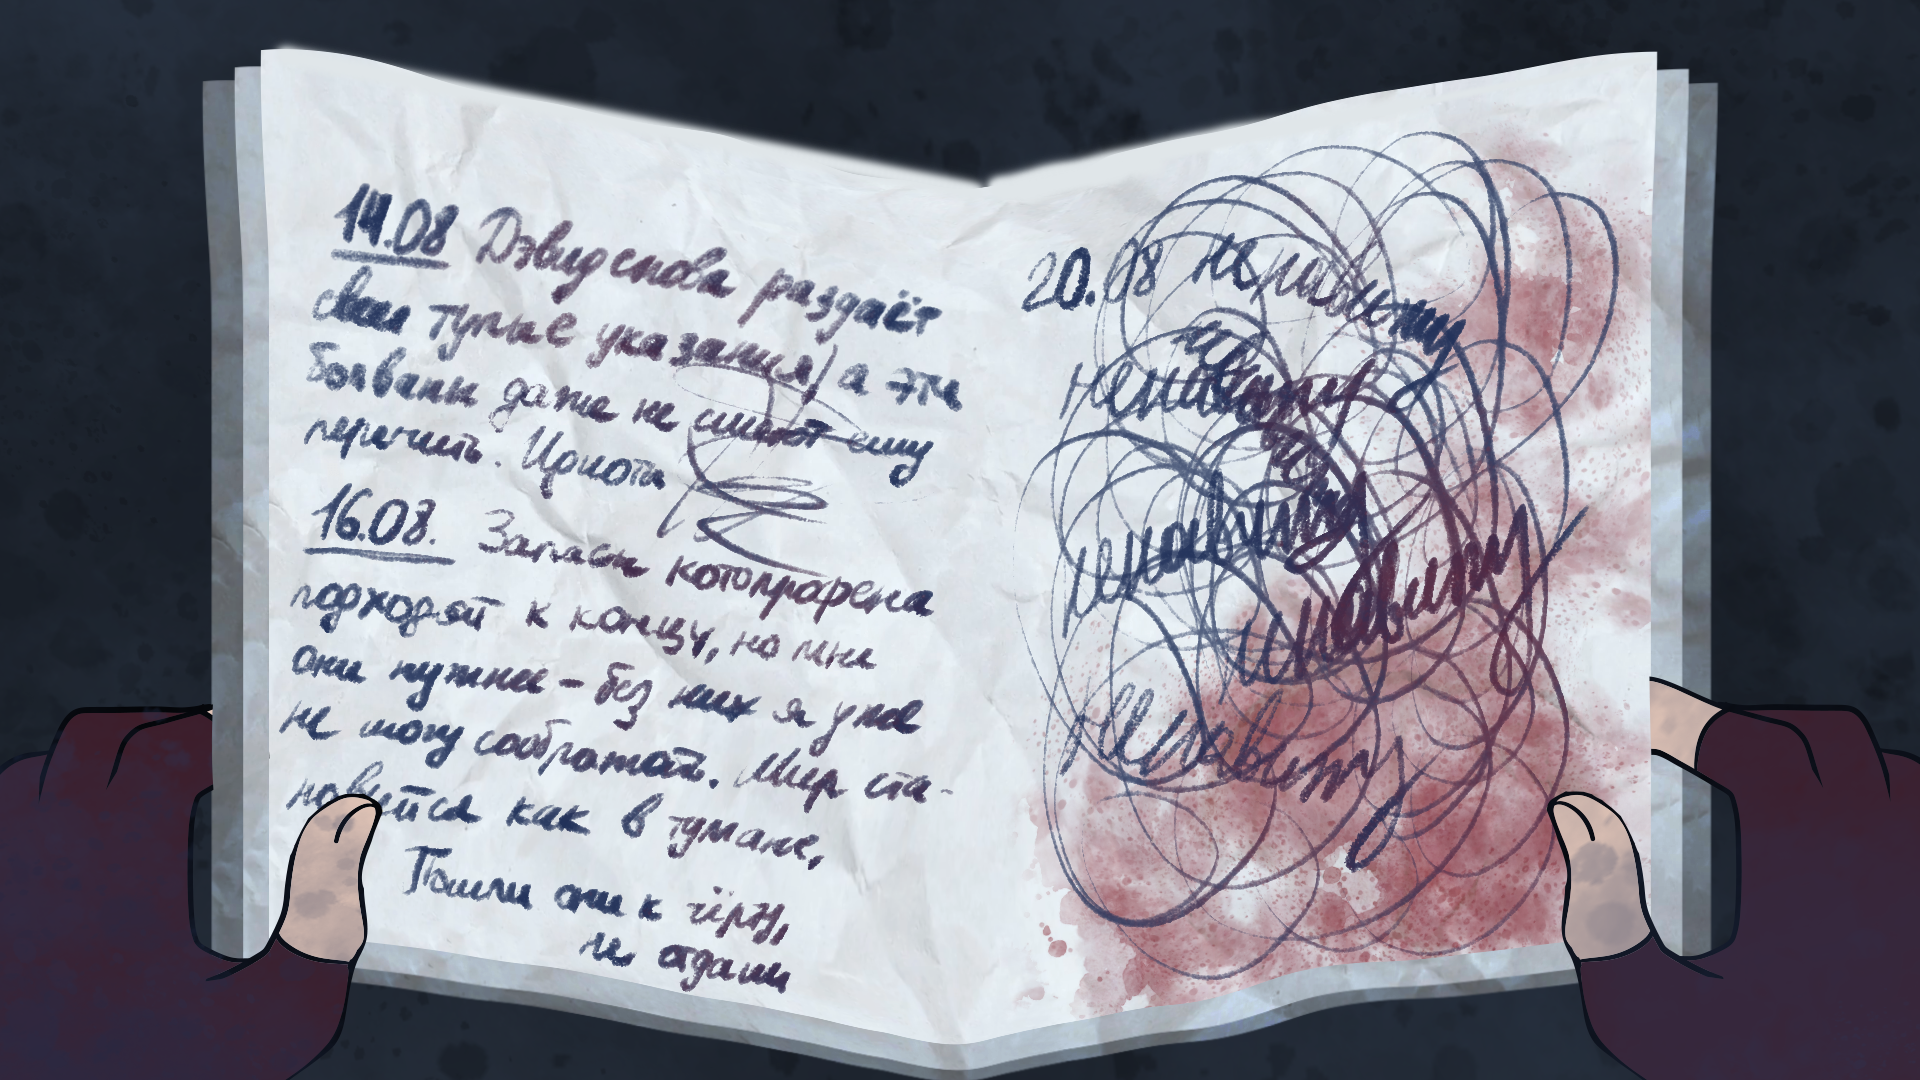 14.08 Дэвид снова раздаёт
свои тупые указания, а эти
болваны даже не смеют ему
перечить. Идиоты
16.08. Запасы котопрарена
подходят к концу, но мне
они нужнее - без них я уже
не могу соображать. Мир ста-
новится как в тумане,
Пошли они к чёрту,
не отдам
20.08 ненавижу
ненавижу
ненавижу
ненавижу
ненавижу